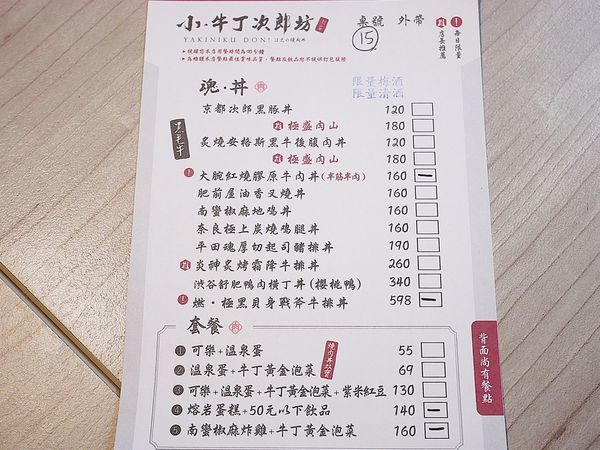 小·牛丁次郎坊
YAKINIKU DON! 日式の燒肉丼
桌號 外帶
15
! 每日限量
店長推薦
•提醒您本店用餐時間為90分鐘
•為維護本店餐點最佳賞味品質,餐點及飲品恕不提供打包服務
魂·丼
限量梅酒
限量清酒
京都次郎黑豚丼 120
極盛肉山 180
炙燒安格斯黑牛後腹肉丼 120
極盛肉山 180
! 大腕紅燒膠原牛肉丼(半筋半肉) 160
肥前屋油香叉燒丼 160
南蠻椒麻地鸡丼 160
奈良極上炭燒鸡腿丼 160
平田魂厚切起司豬排丼 190
炎神炙烤霜降牛排丼 260
渋谷舒肥鴨肉橫丁丼(櫻桃鴨) 340
! 燃·極黑貝身戰斧牛排丼 598
套餐
燒肉丼攻寶
1 可樂+溫泉蛋 55
2 溫泉蛋+牛丁黃金泡菜 69
3 可樂+溫泉蛋+牛丁黃金泡菜+紫米紅豆 130
4 熔岩蛋糕+50元以下飲品 140
5 南蠻椒麻炸雞+牛丁黃金泡菜 160
背面尚有餐點